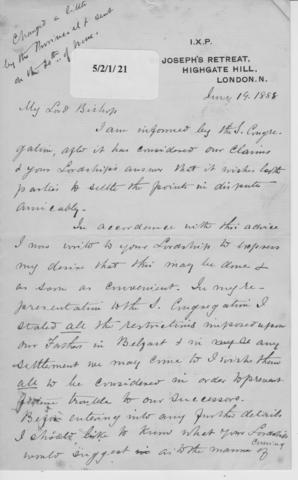 Changed a little
by the Provincial & sent
on the 20th of June.
5/2/1/21
I.X.P.
JOSEPH'S RETREAT,
HIGHGATE HILL,
LONDON. N.
June 19. 1888
My Lord Bishop
I am informed by the S. Congre-
gation, after it has considered our Claims
& your Lordship's answer that it wishes both
parties to settle the points in dispute
amicably.
In accordance with this advice
I now write to your Lordship to express
my desire that this may be done &
as soon as convenient. In my re-
presentation to the S. Congregation I
stated all the restrictions imposed upon
our Fathers in Belfast & in any
settlement we may come to I wish them
all to be considered in order to prevent
future trouble to our successors.
Before entering into any further details
I should like to know what your Lordship
would suggest as to the manner of
coming